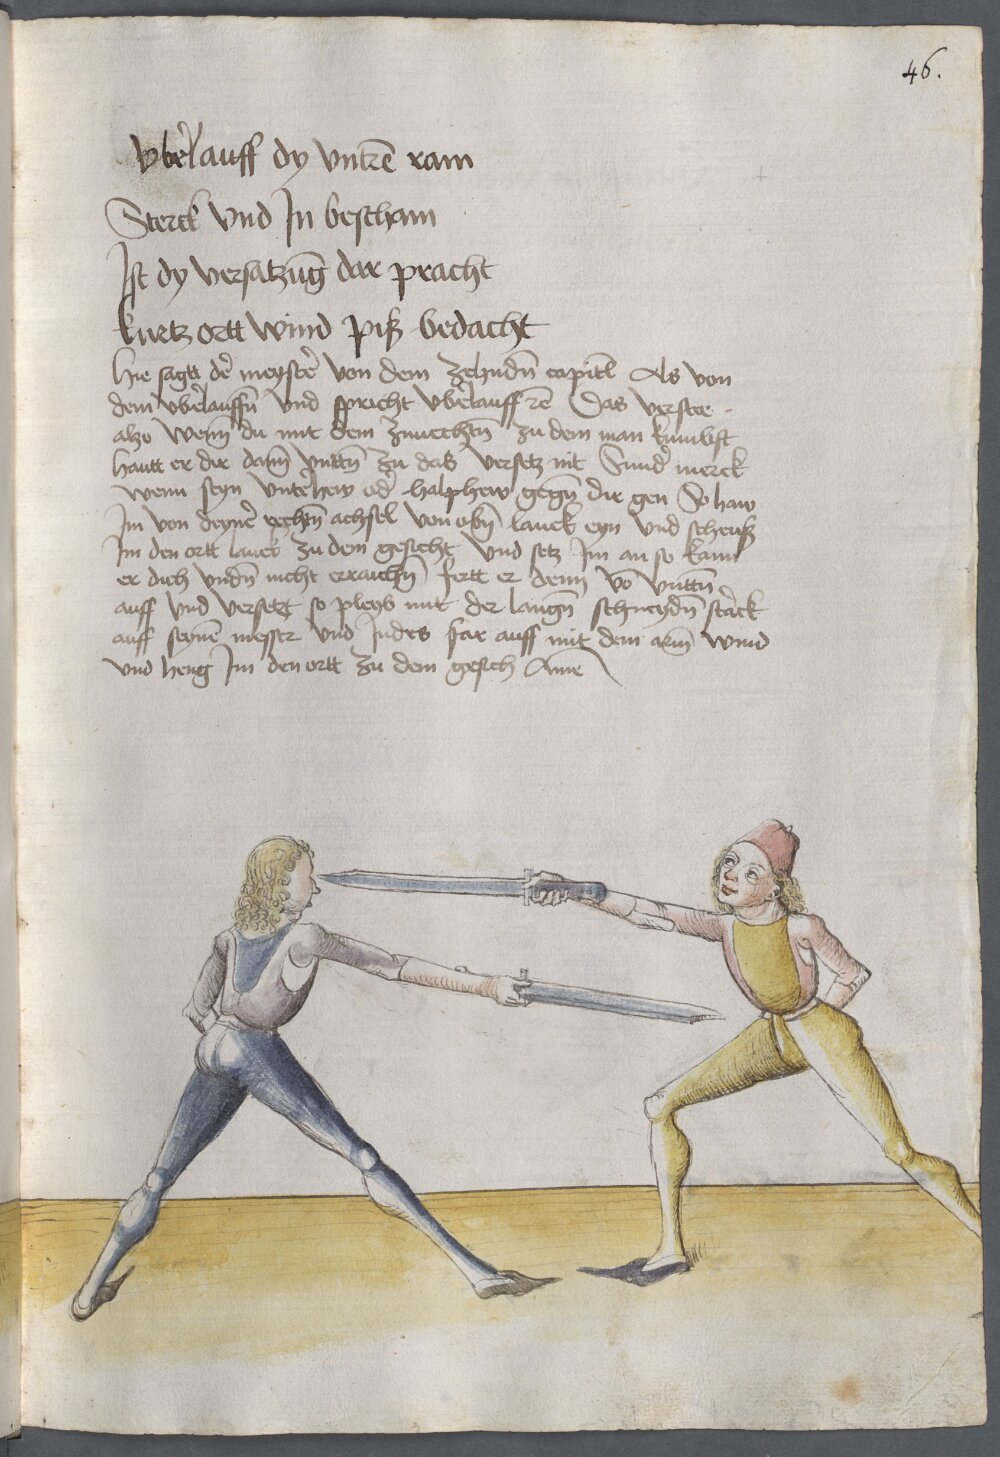 46.
vber lauff dy vntrē ram
Sterck vnd In bescham
Ist dy versatzūg dar pracht
kurtz ortt wind piß bedacht
Hie sagtt dē meystē von dem zehndn̄ capitl Als von
dem vbēlauffn̄ vnd spricht vbēlauff rē Das verstee
also wenn̄ du mit dem zuuechtn̄ zu dem man kumbst
hautt er dir dann̄ vnttn̄ zu das versetz nit Sundē merck
wenn seyn vntēhew odē halphew gegn̄ dir gen So haw
Im von deynē rechtn̄ achsel von obn̄ lanck eyn vnd scheuß
Im den ortt lanck zu dem gesicht vnd setz Im an so kann
er dich vndn̄ nicht erraichn̄ fertt er denn vō vnttn̄
auff vnd versetzt so pleyb mit der langn̄ schneydn̄ stērck
auff seynē messer vnd Indes far auff mit dem arm̄ wind
vnd heng Im den ortt zu dem gesich